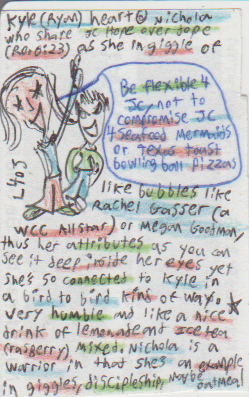 Kyle (Ryan) heart @ Nichola
who share JC Hope over dope
(Ro. 8:23) as she in giggle of
Be flexible 4
JC, not to
compromise JC
4 Seafood Mermaids
or texas toast
bowling ball pizzas
L405
like bubbles like
Rachel Gasser (a
WCC Allstar) or Megan Goodman,
thus her attributes as you can
see it deep inside her eyes yet
she's so connected to Kyle in
a bird to bird kins of way.
very humble and like a nice
drink of lemonade and Icetea
(rasberry) mixed. Nichola is a
warrior in that she's an example
in giggles, discipleship, maybe oatmeal